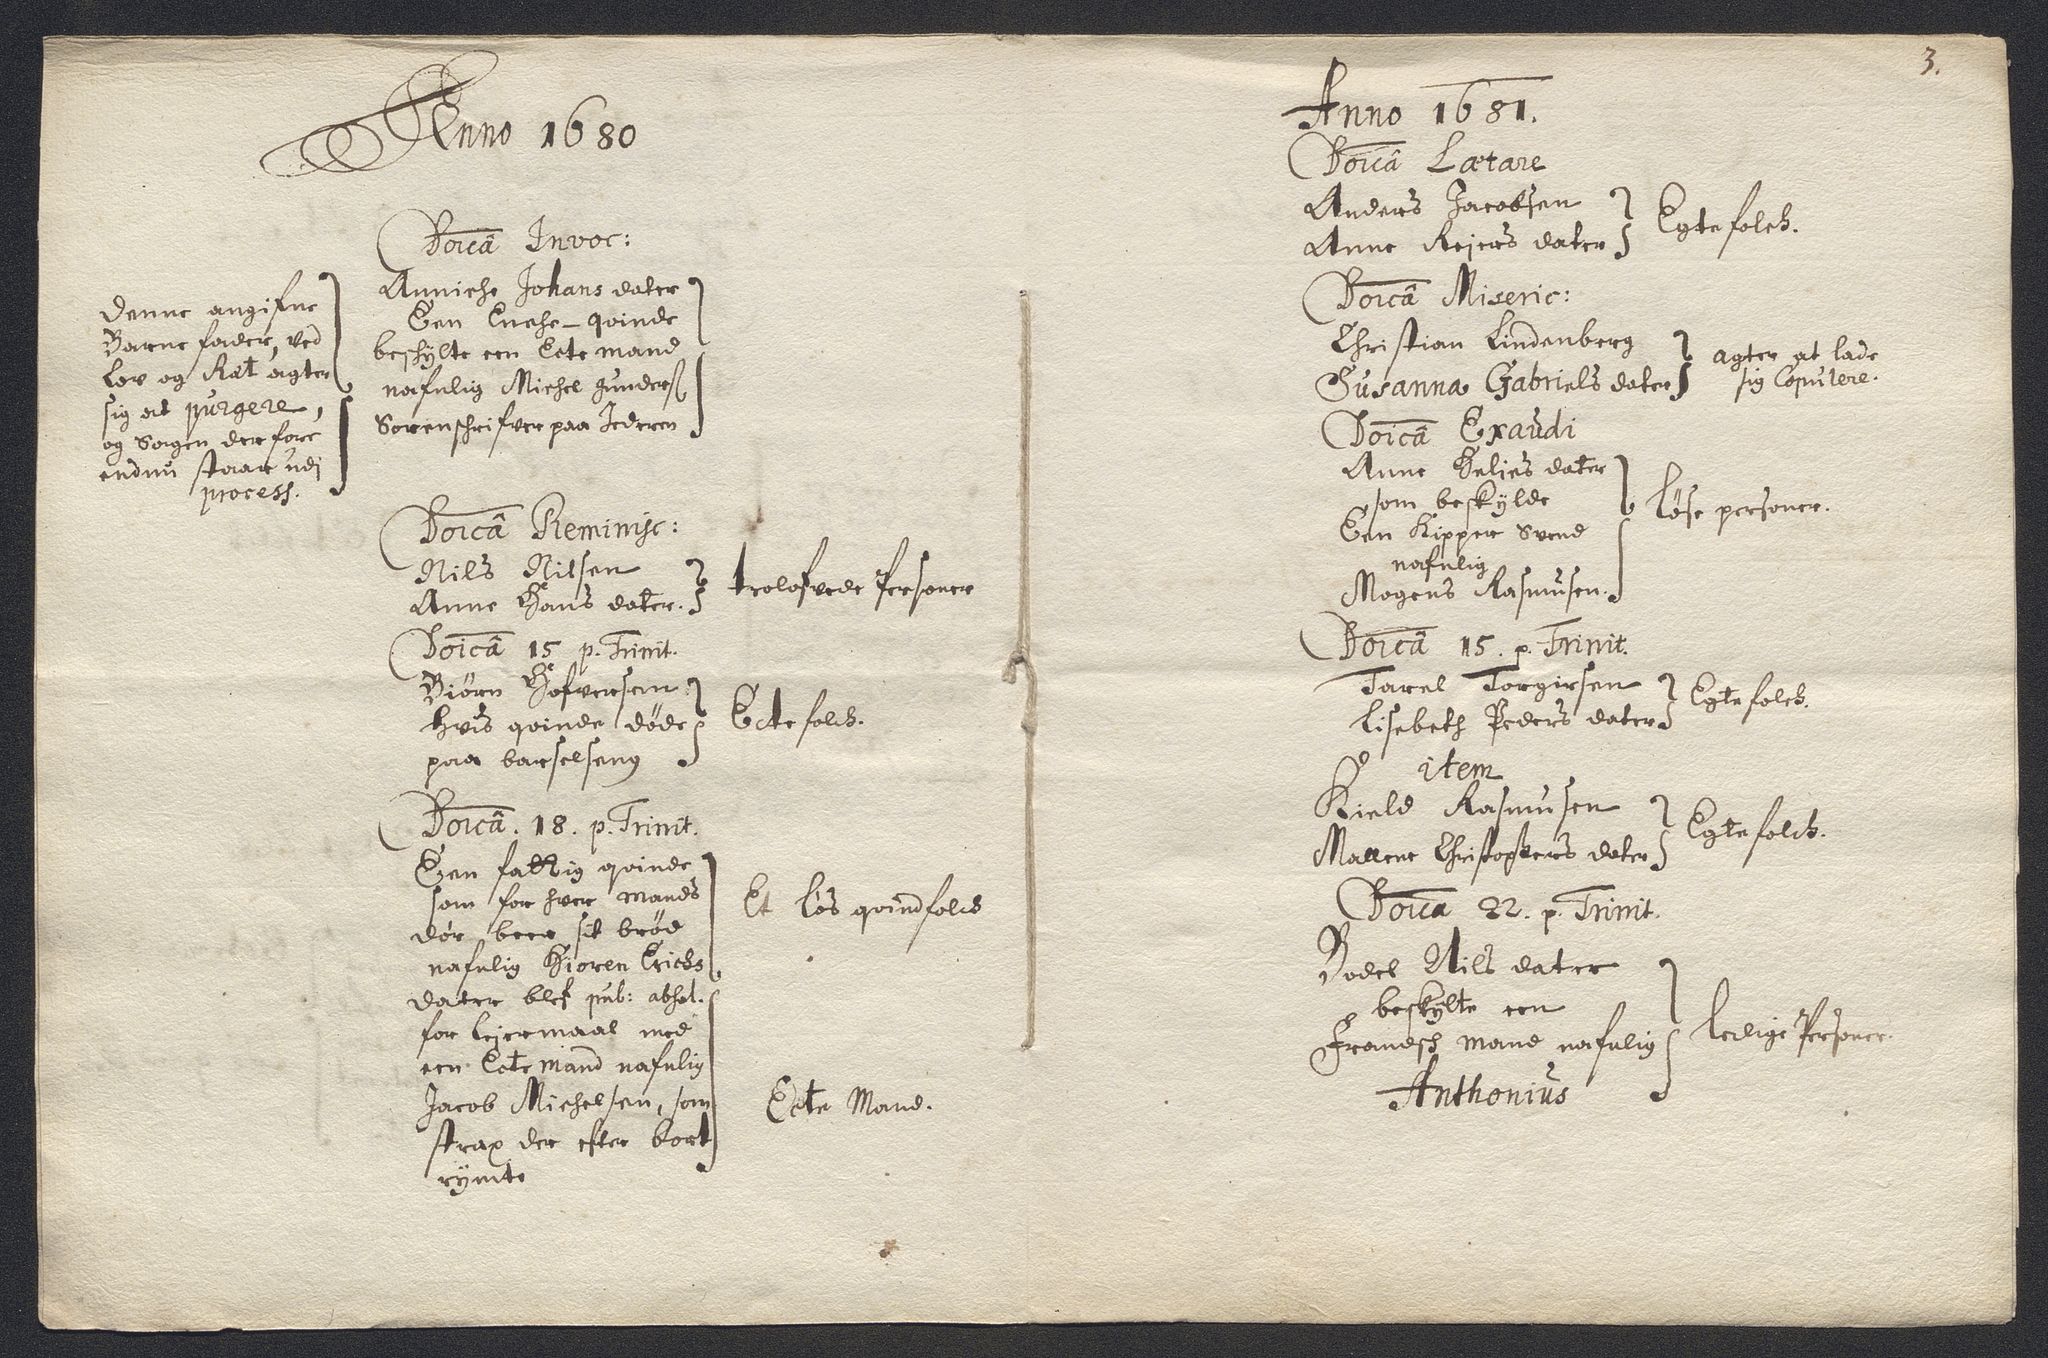 Anno 1680
Doĩcâ Invoc:
Anniche Johans dater
Een Enche-qvinde
beschÿlte een Ecte mand
nafnlig Michel Gunderß
Sorenschrifver paa Jederen
denne angifne
Barne fader, ved
Lov og Ræt agter
sig at purgere,
og Sagen der fore
endnu staar udj
process.
Doĩcâ Reminisc:
Nils Nilsen
Anne Hans dater.
trolofvede Personer
Doĩcâ 15 p. Trinit.
Biörn Hofversen
hvis qvinde döde
paa barselseng
Ecte folch.
Doĩcâ. 18. p. Trinit.
Een fattig qvinde
som for hver mands
dör beer sit bröd
nafnlig Kioren Erichs
dater blef pub: absol.
for leiermaal med
een Ecte mand nafnlig
Jacob Michelsen, som
strax der efter bort
rÿmte
Et lös qvindfolch
Ecte Mand.
3.
Anno 1681.
Doĩcâ Lætare
Anders Jacobsen
Anne Reiers dater
Egtefolch.
Doĩcâ Miseric:
Christian Lindenberg
Susanna Gabriels dater
agter at lade
sig Copulere.
Doĩcâ Exaudi
Anne Helies dater
som beskÿlde
Een Kipper Svend
nafnlig
Mogens Rasmusen.
löse personer.
Doĩcâ 15. p. Trinit.
Tarel Torgirsen
Lisebeth Peders dater
Egtefolch.
item
Kield Rasmusen
Mallene Christophers dater
Egtefolch.
Doĩca 22. p. Trinit.
Bodel Nils dater
beskÿlte een
Frandsk mand nafnlig
Anthonius
ledige Personer.